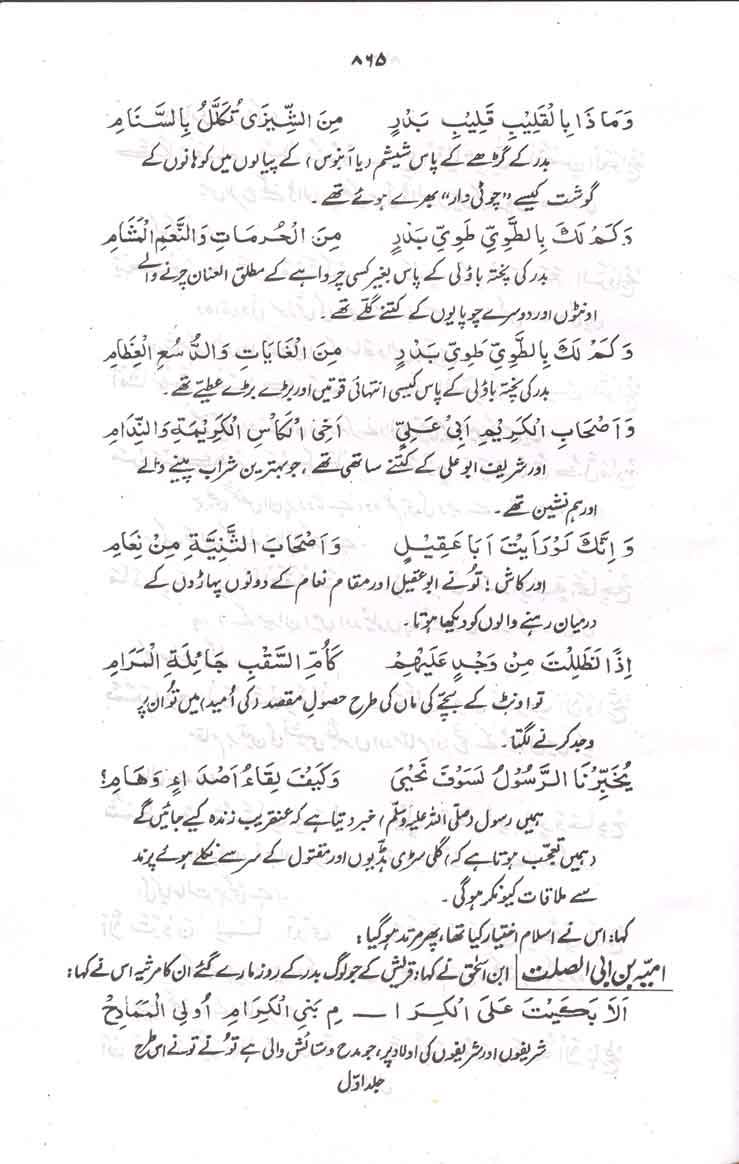 ۸۶۵
وَمَاذَا بِالْقَلِيْبِ قَلِيْبِ بَدْرٍ مِنَ الشِّيْزٰى تُكَلَّلُ بِالسَّنَامِ
بدر کے گڑھے کے پاس شیشم (یا آبنوس) کے پیالوں میں کوہانوں کے
گوشت کیسے "چوٹی دار" بھرے ہوئے تھے۔
وَكَمْ لَكَ بِالطَّوِيِّ طَوِيِّ بَدْرٍ مِنَ الْحُرمَاتِ وَالنَّعَمِ الْمُسَّامِ
بدر کی پختہ باؤلی کے پاس بغیر کسی چرواہے کے مطلق العنان چرنے والے
اونٹوں اور دوسرے چوپایوں کے کتنے گلّے تھے۔
وَكَمْ لَكَ بِالطَّوِيِّ طَوِيِّ بَدْرٍ مِنَ الْغَايَاتِ وَالدُّسُعِ الْعِظَامِ
بدر کی پختہ باؤلی کے پاس کیسی انتہائی قوتیں اور بڑے بڑے عطیّے تھے۔
وَاَصْحَابِ الْكَرِيْمِ اَبِيْ عَلِيٍّ اَخِى الْكَاْسِ الْكَرِيْمَةِ وَالنِّدَامِ
اور شریف ابو علی کے کتنے ساتھی تھے، جو بہترین شراب پینے والے
اور ہم نشین تھے۔
وَاِنَّكَ لَوْ رَاَيْتَ اَبَا عَقِيْلٍ وَاَصْحَابَ الثَّنِيَّةِ مِنْ نِعَامِ
اور کاش! تُو نے ابو عقیل اور مقام نعام کے دونوں پہاڑوں کے
درمیان رہنے والوں کو دیکھا ہوتا۔
اِذًا لَظَلِلْتَ مِنْ وَجْدٍ عَلَيْهِمْ كَاُمِّ السَّقْبِ جَائِلَةِ الْمَرَامِ
تو اونٹ کے بچّے کی ماں کی طرح حصولِ مقصد (کی اُمید) میں تُو ان پر
وجد کرنے لگتا۔
يُخَبِّرُنَا الرَّسُوْلُ لَسَوْفَ نَحْيٰى وَكَيْفَ لِقَاءُ اَصْدَاءٍ وَهَامِ؟
ہمیں رسول (صلی اللہ علیہ وسلم) خبر دیتا ہے کہ عنقریب زندہ کیے جائیں گے
(ہمیں تعجب ہوتا ہے کہ) گلی سڑی ہڈیوں اور مقتول کے سر سے نکلے ہوئے پرند
سے ملاقات کیونکر ہو گی۔
کہا: اس نے اسلام اختیار کیا تھا، پھر مرتد ہو گیا:
امیّہ بن ابی الصلت ابن اسحٰق نے کہا: قریش کے جو لوگ بدر کے روز مارے گئے ان کا مرثیہ اس نے کہا:
اَلَا بَكَيْتَ عَلَى الْكِرَا — مِ بَنِى الْكِرَامِ اُولِى الْمَمَادِحْ
شریفوں اور شریفوں کی اولاد پر، جو مدح و ستائش والی ہے تُو نے تو نے اس طرح
جلد اوّل